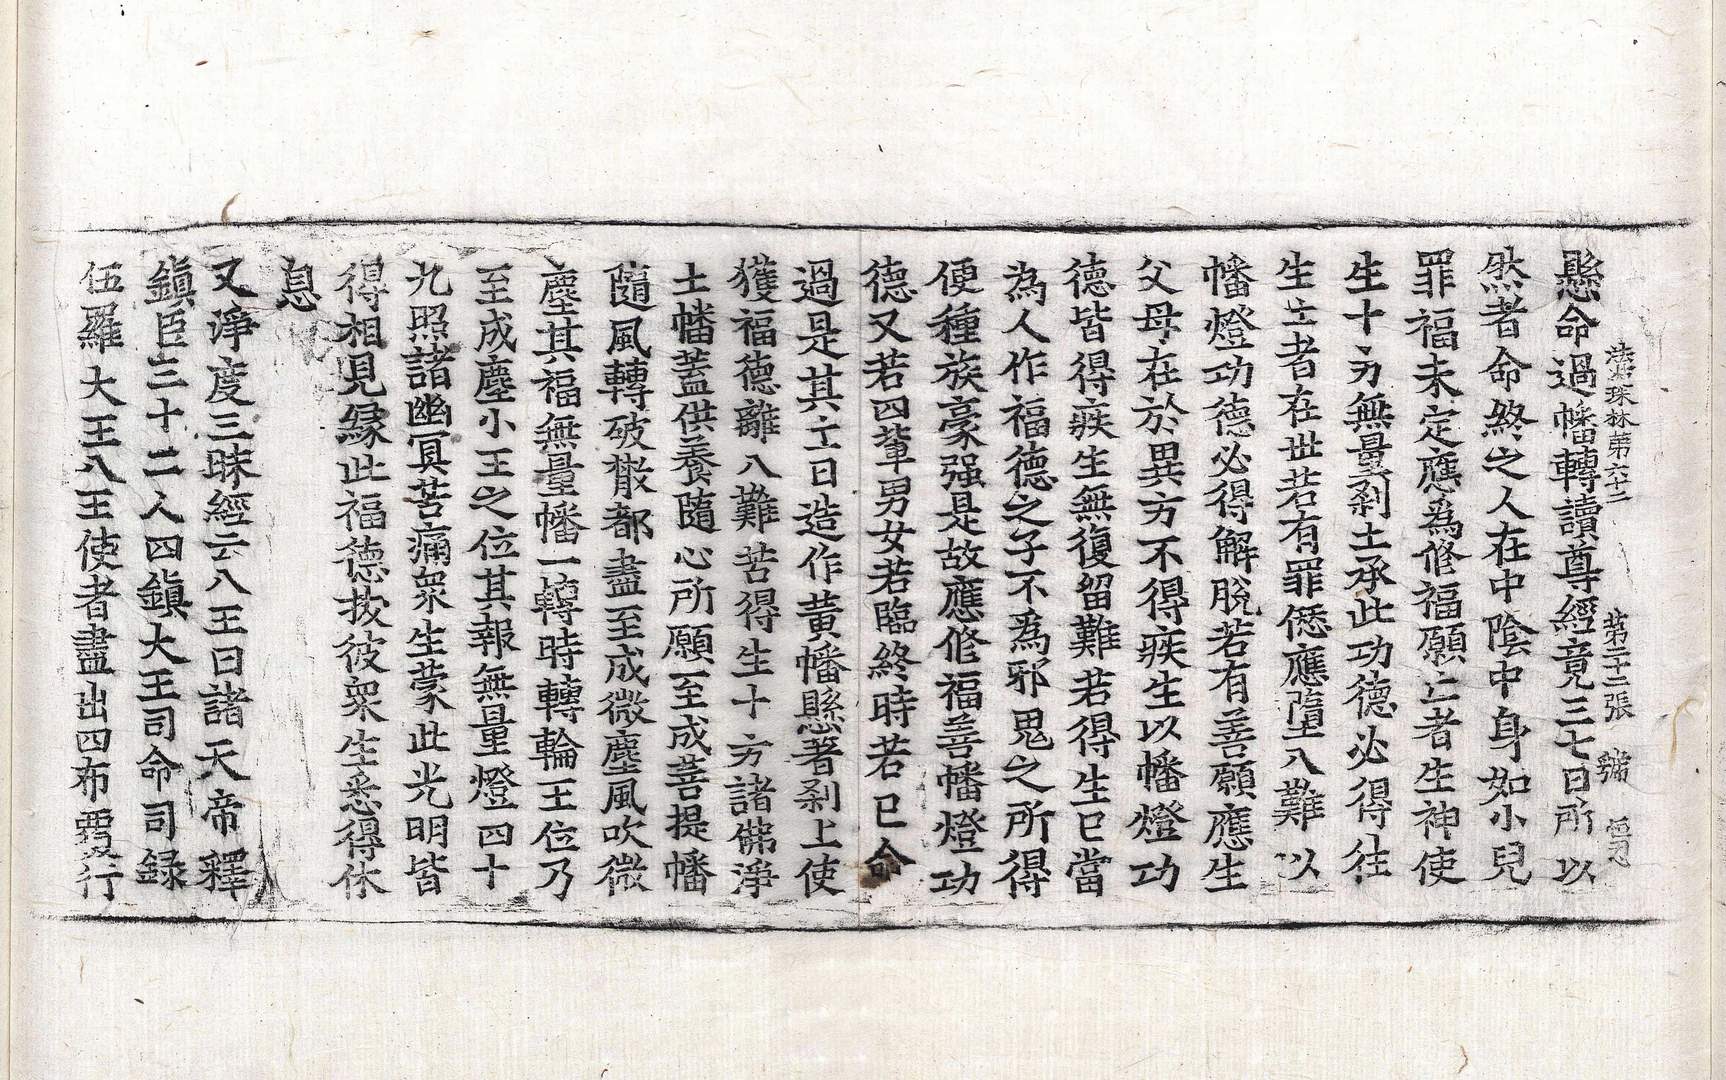 法苑珠林第六十二 第二十二張 號
懸命過幡轉讀尊經竟三七日所以
然者命終之人在中陰中身如小兒
罪福未定應爲修福願亡者生神使
生十方無量剎土承此功德必得往
生亡者在世若有罪僁應墮八難以
幡燈功德必得解脫若有善願應生
父母在於異方不得疾生以幡燈功
德皆得疾生無復留難若得生已當
為人作福德之子不爲邪鬼之所得
便種族豪强是故應修福善幡燈功
德又若四輩男女若臨終時若已命
過是其亡日造作黃幡懸著剎上使
獲福德離八難苦得生十方諸佛淨
土幡蓋供養隨心所願至成菩提幡
隨風轉破散都盡至成微塵風吹微
塵其福無量幡一轉時轉輪王位乃
至成塵小王之位其報無量燈四十
九照諸幽冥苦痛衆生蒙此光明皆
得相見緣此福德拔彼衆生悉得休
息
又淨度三昧經云八王日諸天帝釋
鎮臣三十二人四鎮大王司命司錄
伍羅大王八王使者盡出四布覆行